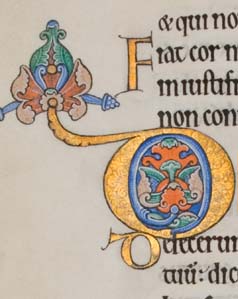 & qui no
Fiat cor m
in iustifi
non con
D
Defecerun
tuū: dic